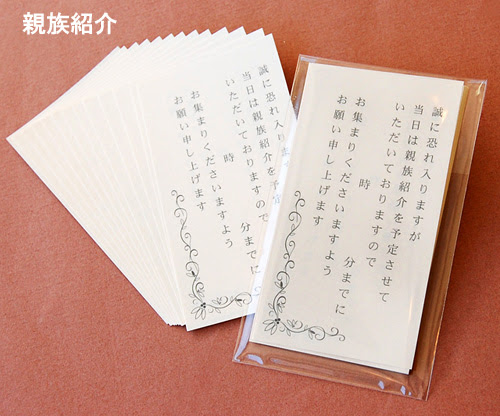 親族紹介
誠に恐れ入りますが
当日は親族紹介を予定させて
いただいておりますので
時 分までに
お集まりくださいますよう
お願い申し上げます
当日は親族紹介を予定
いただいておりますので
時 分までに
お集まりくださいますよう
お願い申し上げます